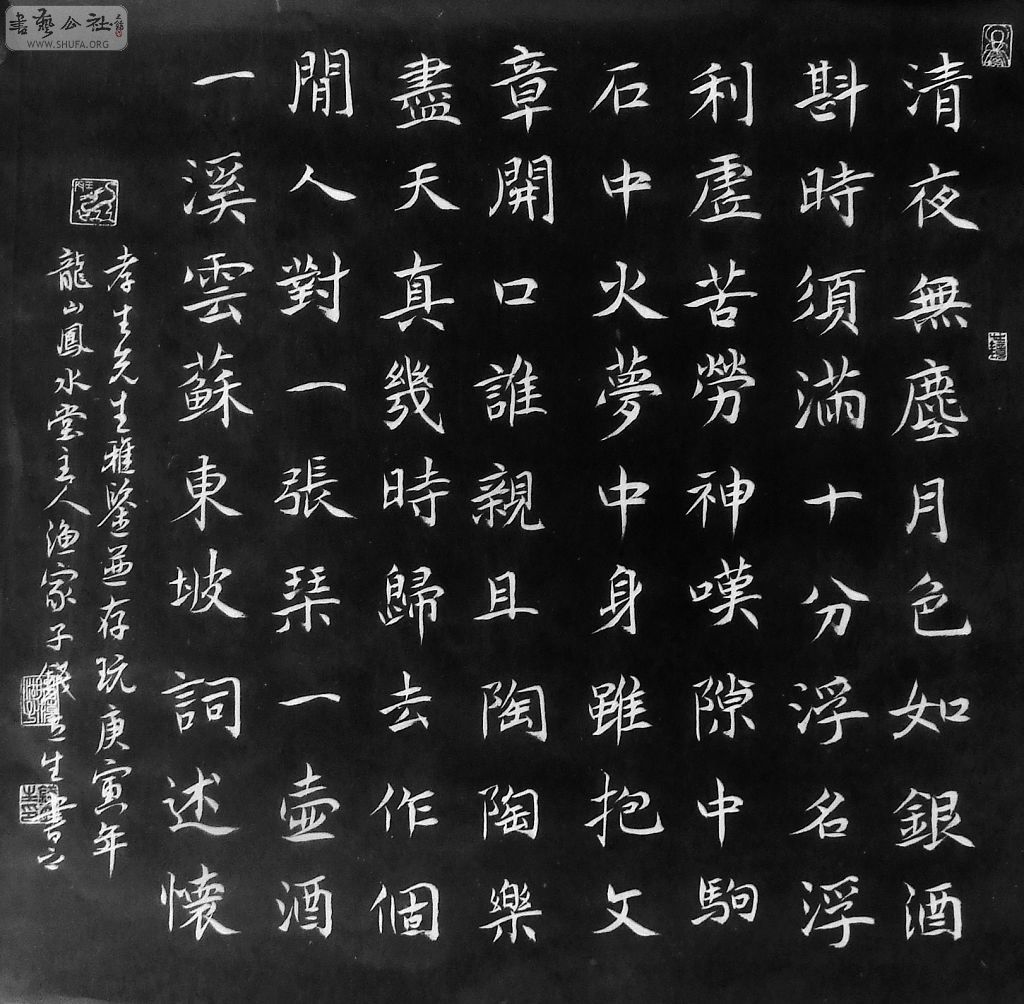 書藝公社
WWW.SHUFA.ORG
清夜無塵月色如銀酒
斟時須滿十分浮名浮
利虛苦勞神嘆隙中駒
石中火夢中身雖抱文
章開口誰親且陶陶樂
盡天真幾時歸去作個
閒人對一張琴一壺酒
一溪雲蘇東坡詞述懷
孝生先生雅鑒並存玩庚寅年
龍山鳳水堂主人漁家子錢立生書之